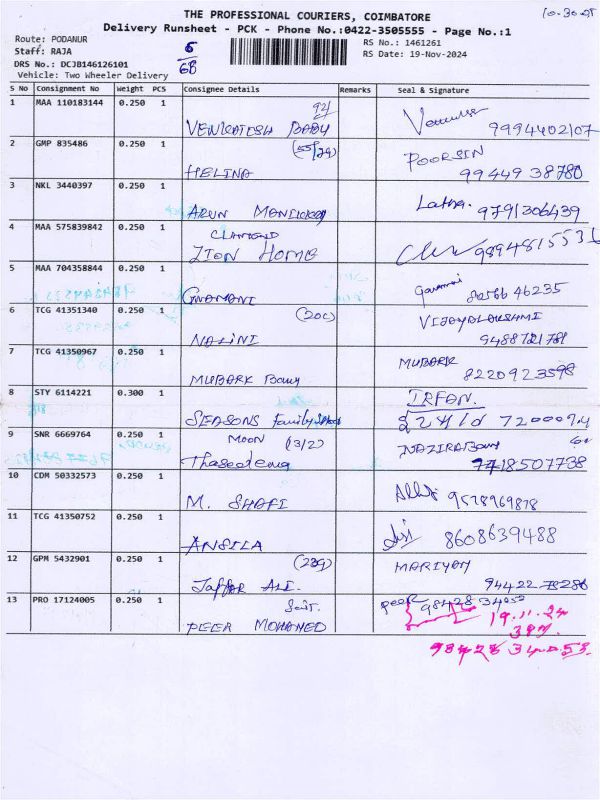 THE PROFESSIONAL COURIERS, COIMBATORE
Delivery Runsheet - PCK - Phone No.:0422-3505555 - Page No.:1
Route: PODANUR
Staff: RAJA
DRS No.: DCJB146126101
Vehicle: Two Wheeler Delivery
6/6B
RS No.: 1461261
RS Date: 19-Nov-2024
S No Consignment No Weight PCS Consignee Details Remarks Seal & Signature
1 MAA 110183144 0.250 1 VENKATESH BABY 92/ 9994402107
2 GMP 835486 0.250 1 HELINA (55/29) POORSIN 99449 38780
3 NKL 3440397 0.250 1 ARUN Latha. 9791306439
4 MAA 575839842 0.250 1 ZION HOME 9894815536
5 MAA 704358844 0.250 1 46235
6 TCG 41351340 0.250 1 NALINI (20C) VIJAYALAKSHMI 9488721781
7 TCG 41350967 0.250 1 MUBARK MUBARK 8220923598
8 STY 6114221 0.300 1 SEASONS family IRFAN.
9 SNR 6669764 0.250 1 MOON (3/2) 7418507738
10 CDM 50332573 0.250 1 M. SHAFI 9578969878
11 TCG 41350752 0.250 1 ANSILA 8608639488
12 GPM 5432901 0.250 1 JAFFAR ALI. (239) MARIYAM 94422 78286
13 PRO 17124005 0.250 1 PEER MOHAMED peer
19.11.24